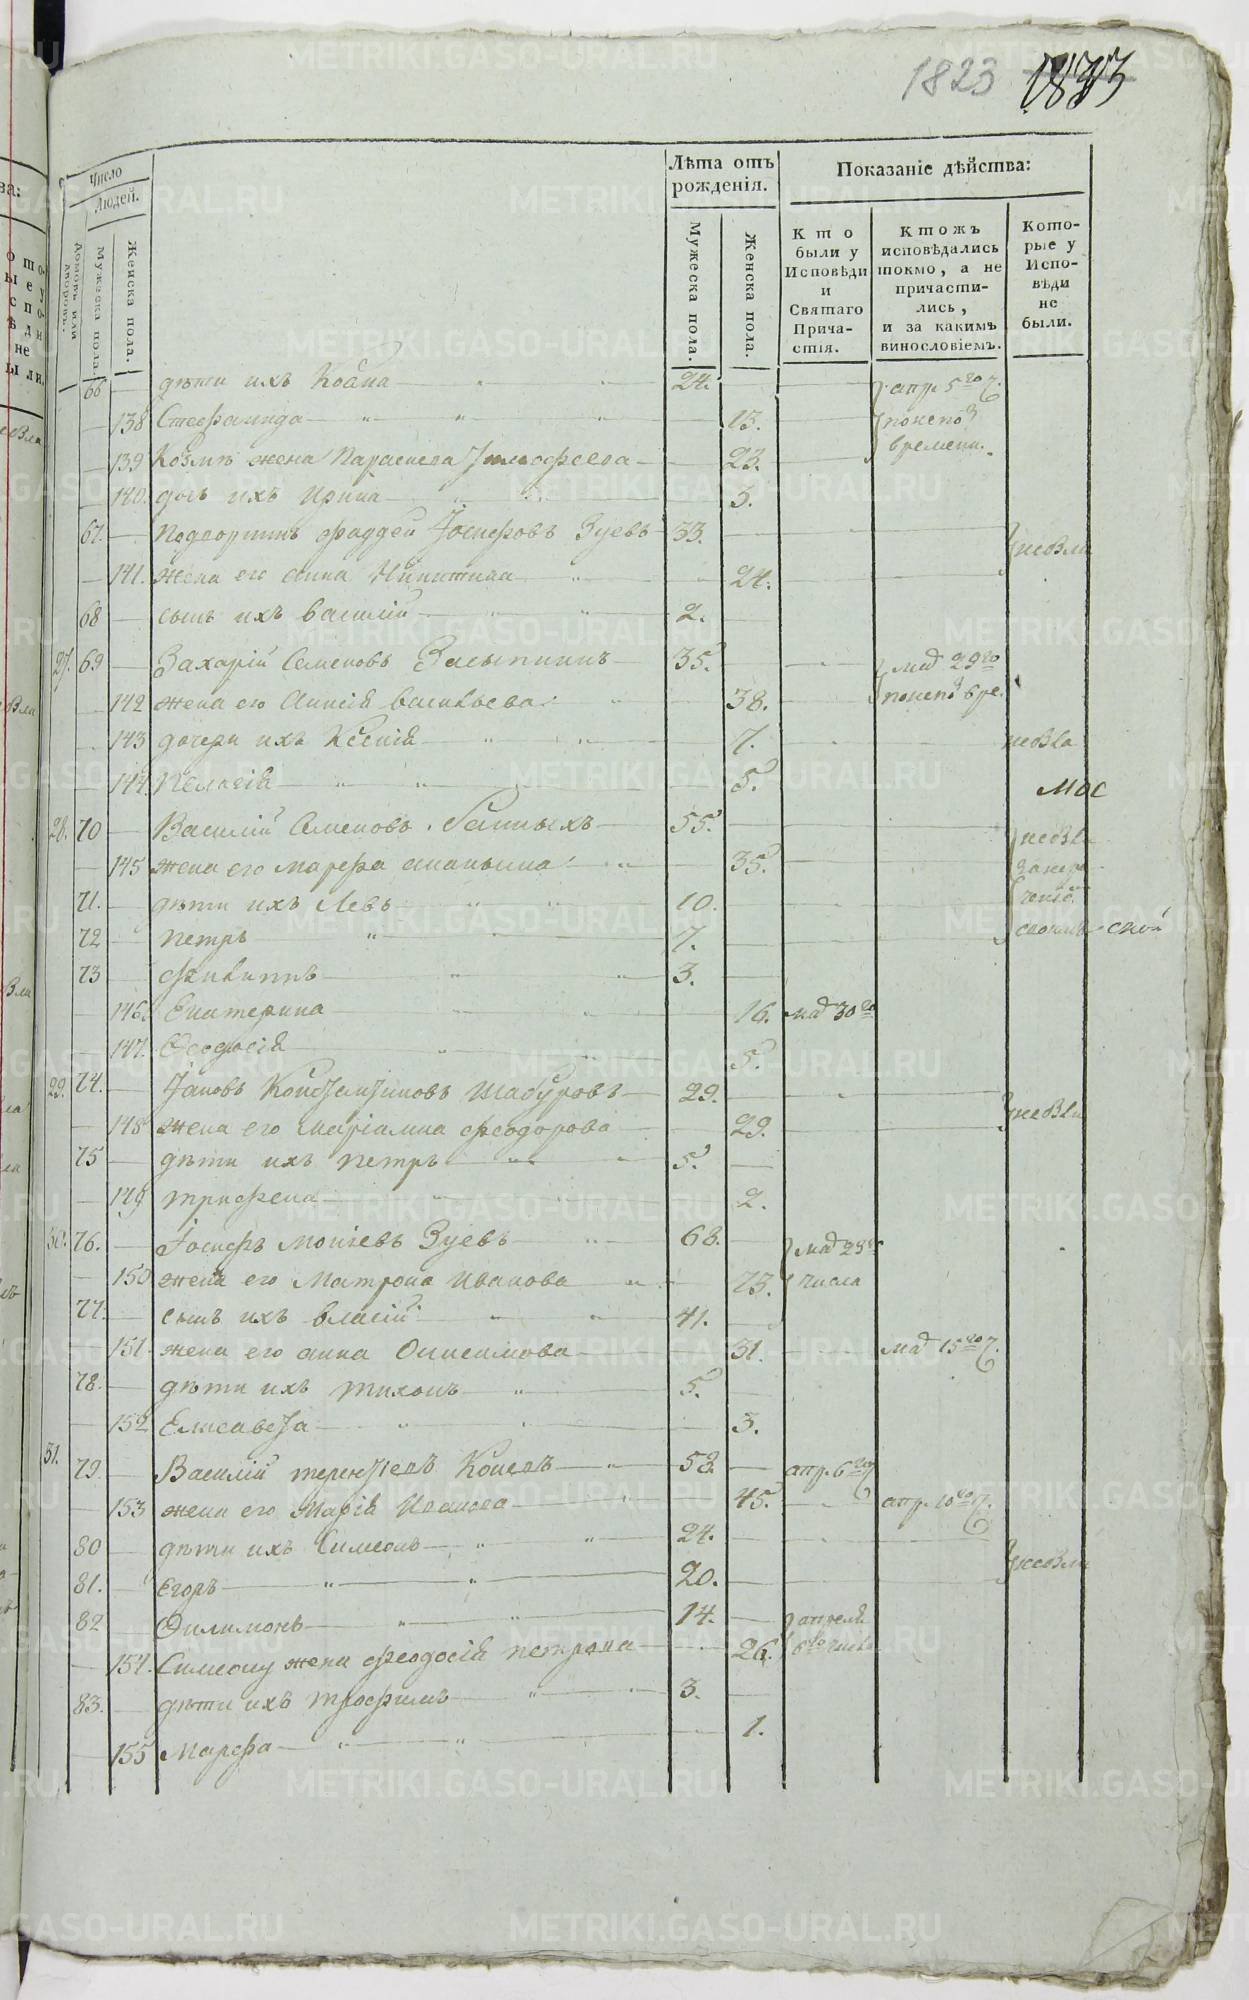 1823 1833
Число
Людей.
Лѣта отъ
рожденія.
Показаніе дѣйства:
Домовъ или
дворовъ.
Мужеска пола.
Женска пола.
Мужеска пола.
Женска пола.
Кто
были у
Исповѣди
и
Святаго
Прича-
стія.
Ктожъ
исповѣдались
токмо, а не
причасти-
лись,
и за какимъ
винословіемъ.
Кото-
рые у
Испо-
вѣди
не
были.
66 дѣти ихъ Козма 24. апр. 5го
138 Стефанида 13.
времени.
139 Козмѣ жена Параскева Тимофеева 23.
140. дочь ихъ Ирина 3.
67. Подворникъ фаддей Іосифовъ Зуевъ 33. невзла
141. жена его анна Никитина 24.
68 сынъ ихъ василій 2.
27. 69 Захарій Семеновъ Засыпкинъ 35. маія 29го
142 жена его Анисія васильева 38.
143 дочери ихъ Ксенія 7.
144. Пелагія 5.
28. 70 Василій Семеновъ 55.
145 жена его марфа ананьина 35.
71. дѣти ихъ Левъ 10.
72 петръ 7.
73 филиппъ 3.
146. Екатерина 16. маія 30го
147. Феодосія 5.
29. 74. Іаковъ Константиновъ Шабуровъ 29.
148 жена его маріамна феодорова 29.
75 дѣти ихъ петръ 5.
149 трифена 2.
30. 76. Іосифъ моисіевъ Зуевъ 68. маія 29
150 жена его Матрона Иванова 73. числа
77. сынъ ихъ власій 41.
151 жена его анна Онисимова 31. маія 15го
78. дѣти ихъ тихонъ 5.
152 Елисавета 3.
31. 79. Василій терентіевъ Коневъ 53. апр. 6го
153 жена его Марія Иванова 45. апр. 10го
80 дѣти ихъ Симеонъ 24.
81. Егоръ 20.
82 Филимонъ 14. апреля
154. Симеону жена феодосія петрова 26. 6го числа
83. дѣти ихъ трофимъ 3.
155 Марфа 1.
METRIKI.GASO-URAL.RU